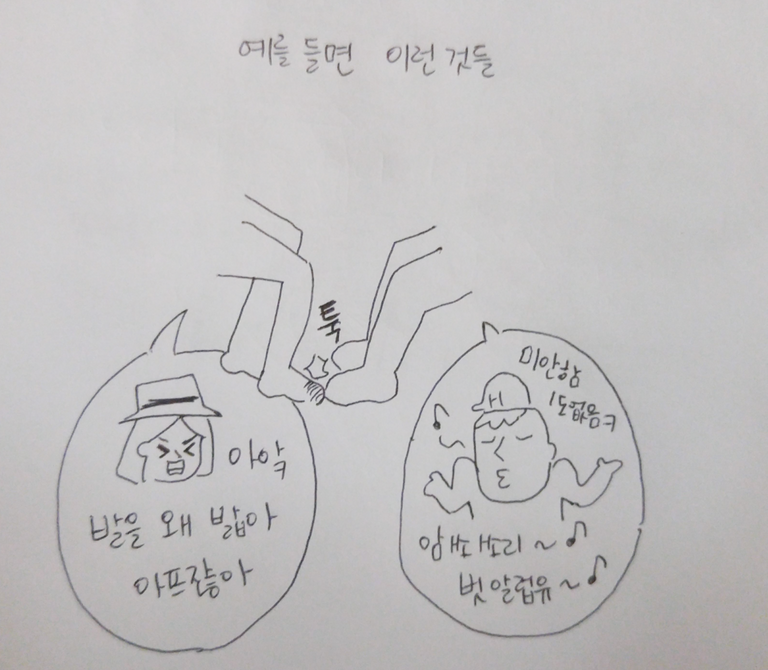 예를 들면 이런 것들
툭
미안함
1도없음ㅋ
아악
발을 왜 밟아
아프잖아
암쏘쏘리~♪
벗알럽유~♪